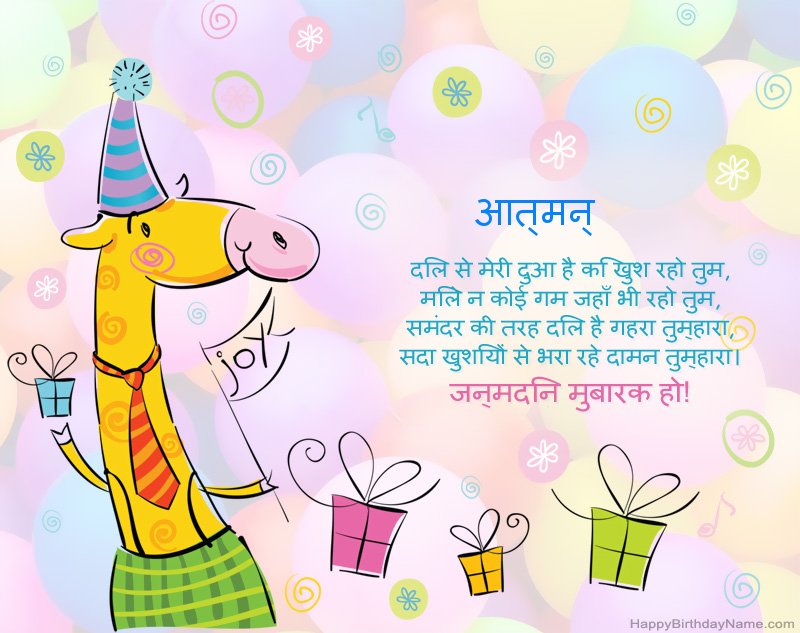 आत्‌मन्
दलि से मेरी दुआ है क खिुश रहो तुम,
मलिे न कोई गम जहाँ भी रहो तुम,
समंदर की तरह दलि है गहरा तुम्‌हारा,
सदा खुशयिों से भरा रहे दामन तुम्‌हारा।
जन्‌मदनि मुबारक हो!
joy
HappyBirthdayName.com